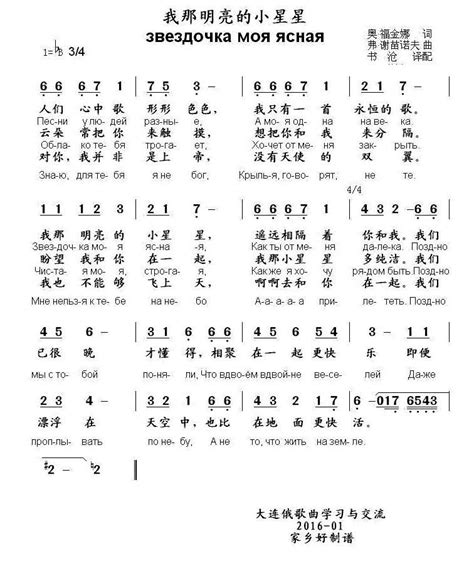 我那明亮的小星星
звездочка моя ясная
奥·福金娜 词
弗·谢苗诺夫 曲
书 沧 译配
1=♭B 3/4
6 6 6 7 1 7 5 3 - 6 6 6 7 1 2 1 7 -
人们 心中 歌 形形 色色, 我只有一 首 永恒的 歌。
Пес-ни у людей раз-ны-е, А мо-я од-на на ве-ка.
云朵 常把 你 来触 摸, 想把你和 我 来分 隔。
Об-ла-ко те-бя тро-га-ет, Хо-чет от ме-ня зак-рыть.
对你,我并 非 是上 帝, 没有天使 的 双 翼。
Зна-ю, для те-бя я не бог, Крыль-я, го-во-рят, не те.
4/4
1 1 1 2 3 2 1 7 - 6 6 6 7 1 7 5 3 - 3 3
我那 明亮 的 小星 星, 遥远相隔 着 你和 我。我们
Звез-доч-ка мо-я яс-на-я, Как ты от ме-ня да-ле-ка. Позд-но
盼望 我和 你 在一 起, 我那小星 星 多纯 洁。我们
Чис-та-я мо-я, стро-га-я, Как же я хо-чу ря-дом быть. Позд-но
我也 不能 够 飞上 天, 啊啊去和 你 在一 起。我们
Мне нель-зя к те-бе на не-бо А-а-а-а при-ле-теть. Позд-но
4 5 6 - 3 2 1 6 6 6 6 7 1 7 5 3 - 1 1
已很 晚 才懂 得,相聚 在一 起 更快 乐 即使
мы с то-бой по-ня-ли, Что вдво-ём вдвой-не ве-се-лей Да-же
4 5 6 - 3 2 1 6 6 2 1 2 3 1 7 6 - 017 6543
漂浮 在 天空 中,也比 在地 面 更快 活。
проп-лы-вать по не-бу, А не то, что жить на зем-ле.
#2 - ♮2 #2 -
大连俄歌曲学习与交流
2016-01
家乡好制谱